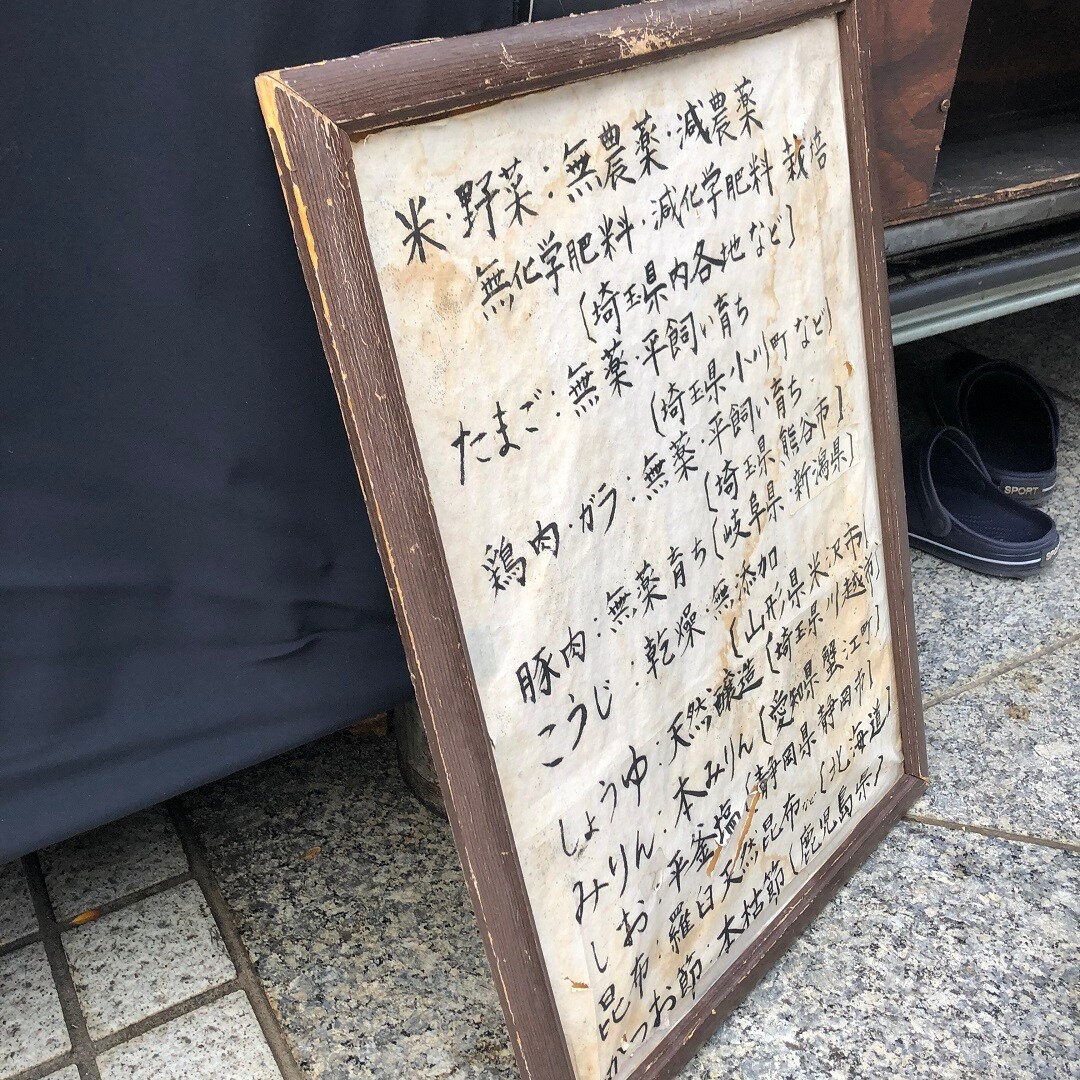 米・野菜：無農薬・減農薬
無化学肥料・減化学肥料 栽培
(埼玉県内各地など)
たまご：無薬・平飼い育ち
(埼玉県小川町など)
鶏肉・ガラ：無薬・平飼い育ち
(埼玉県熊谷市)
豚肉：無薬育ち(岐阜県・新潟県)
こうじ：乾燥・無添加
(山形県米沢市)
しょうゆ：天然醸造(埼玉県川越市)
みりん：本みりん(愛知県蟹江町)
しお：平釜塩(静岡県静岡市)
昆布：羅臼天然昆布など(北海道)
かつお節：本枯節(鹿児島県)
SPORT